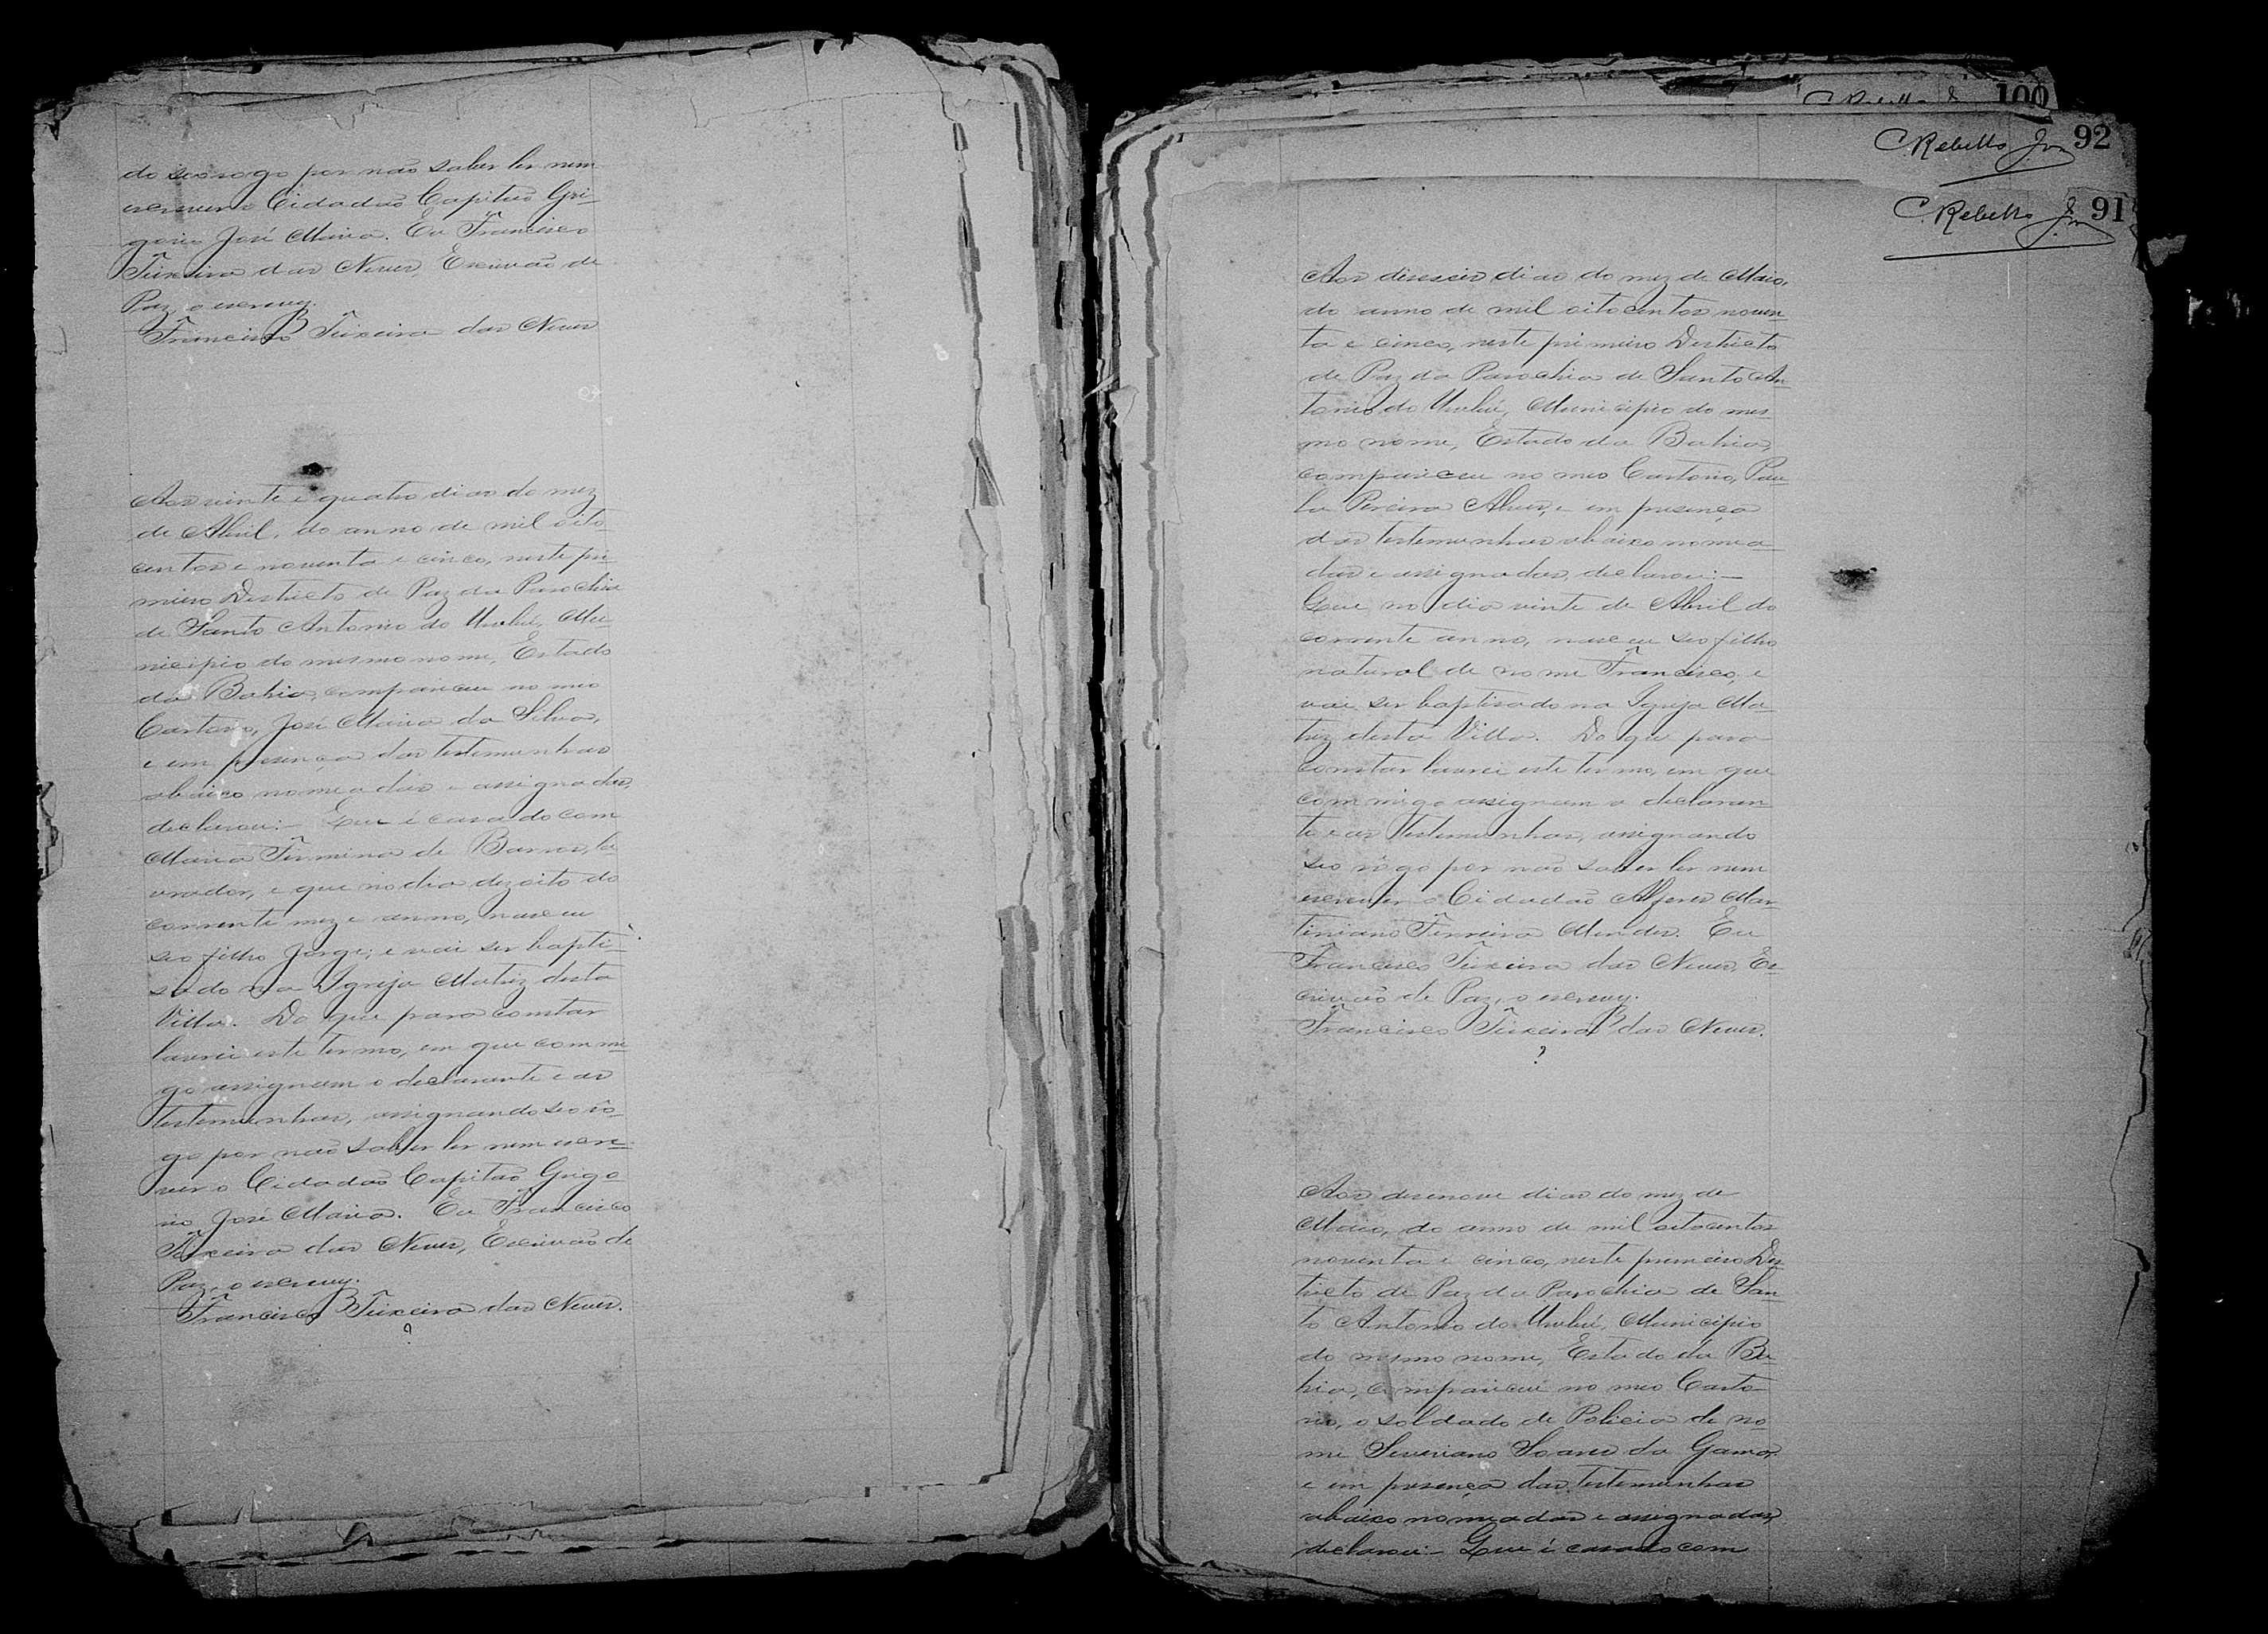 do seo rogo por não saber ler nem
escrever o Cidadão Capitão Gri-
gorio José Maria. Eu Francisco
Teixeira das Neves, Escrivão de
Paz, o escrevy.
Francisco Teixeira das Neves
Aos vinte e quatro dias do mez
de Abril, do anno de mil oito
centos e noventa e cinco, neste pri-
meiro Destricto de Paz da Parochia
de Santo Antonio do Urubú, Mu-
nicipio do mesmo nome, Estado
da Bahia, compareceu no meo
Cartorio, José Maria da Silva,
e em presença das testemunhas
abaixo nomeadas e assignadas,
declarou:- Que é casado com
Maria Firmina de Barros, la-
vrador, e que no dia dezoito do
corrente mez e anno, nasceu
seo filho Jorge; e vai ser bapti-
sado na Igreja Matriz desta
Villa. Do que para constar
lavrei este termo, em que commi-
go assignam o declarante e as
testemunhas, assignando seo ro-
go por não saber ler nem escre-
ver o Cidadão Capitão Grigo-
rio José Maria. Eu Francisco
Teixeira das Neves, Escrivão de
Paz, o escrevy.
Francisco Teixeira das Neves.
100
C Rebello Jor 92
C Rebello Jor 91
Aos diseseis dias do mez de Maio,
do anno de mil oitocentos noven-
ta e cinco, neste primeiro Destricto
de Paz da Parochia de Santo An-
tonio do Urubú, Municipio do mes-
mo nome, Estado da Bahia,
compareceu no meo Cartorio, Pau-
la Pereira Alves, e em presença
das testemunhas abaixo nomea-
das e assignadas, declarou:-
Que no dia vinte de Abril do
corrente anno, nasceu seo filho
natural de nome Francisco, e
vai ser baptisado na Igreja Ma-
triz desta Villa. Do que para
constar lavrei este termo, em que
commigo assignam a declaran-
te e as testemunhas, assignando
seo rogo por não saber ler nem
escrever o Cidadão Alferes Mar-
tiniano Ferreira Mendes. Eu
Francisco Teixeira das Neves, Es-
crivão de Paz, o escrevy.
Francisco Teixeira das Neves.
Aos desenove dias do mez de
Maio, do anno de mil oitocentos
noventa e cinco, neste primeiro Des-
tricto de Paz da Parochia de San-
to Antonio do Urubú, Municipio
do mesmo nome, Estado da Ba-
hia, compareceu no meo Carto-
rio, o soldado de Policia de no-
me Severiano Soares da Gama,
e em presença das testemunhas
abaixo nomeadas e assignadas,
declarou:- Que é casado com